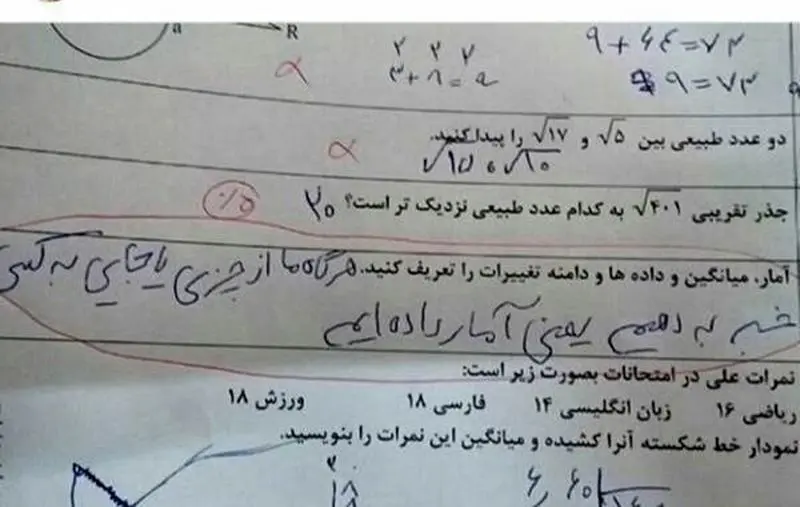 a
R
۹ + ۶۴ = ۷۳
۲ ۲ ۷
۳ + ۸ = ۹
۹ = ۷۳
دو عدد طبیعی بین √۵ و √۱۷ را پیدا کنید.
جذر تقریبی √۴۰۱ به کدام عدد طبیعی نزدیک تر است؟ ۲۰
آمار، میانگین و داده ها و دامنه تغییرات را تعریف کنید. هرگاه ما از چیزی یا جایی به کسی
خبر بدهیم یعنی آمار داده ایم
نمرات علی در امتحانات بصورت زیر است:
ریاضی ۱۶ زبان انگلیسی ۱۴ فارسی ۱۸ ورزش ۱۸
نمودار خط شکسته آنرا کشیده و میانگین این نمرات را بنویسید.
۲۰
۱۸